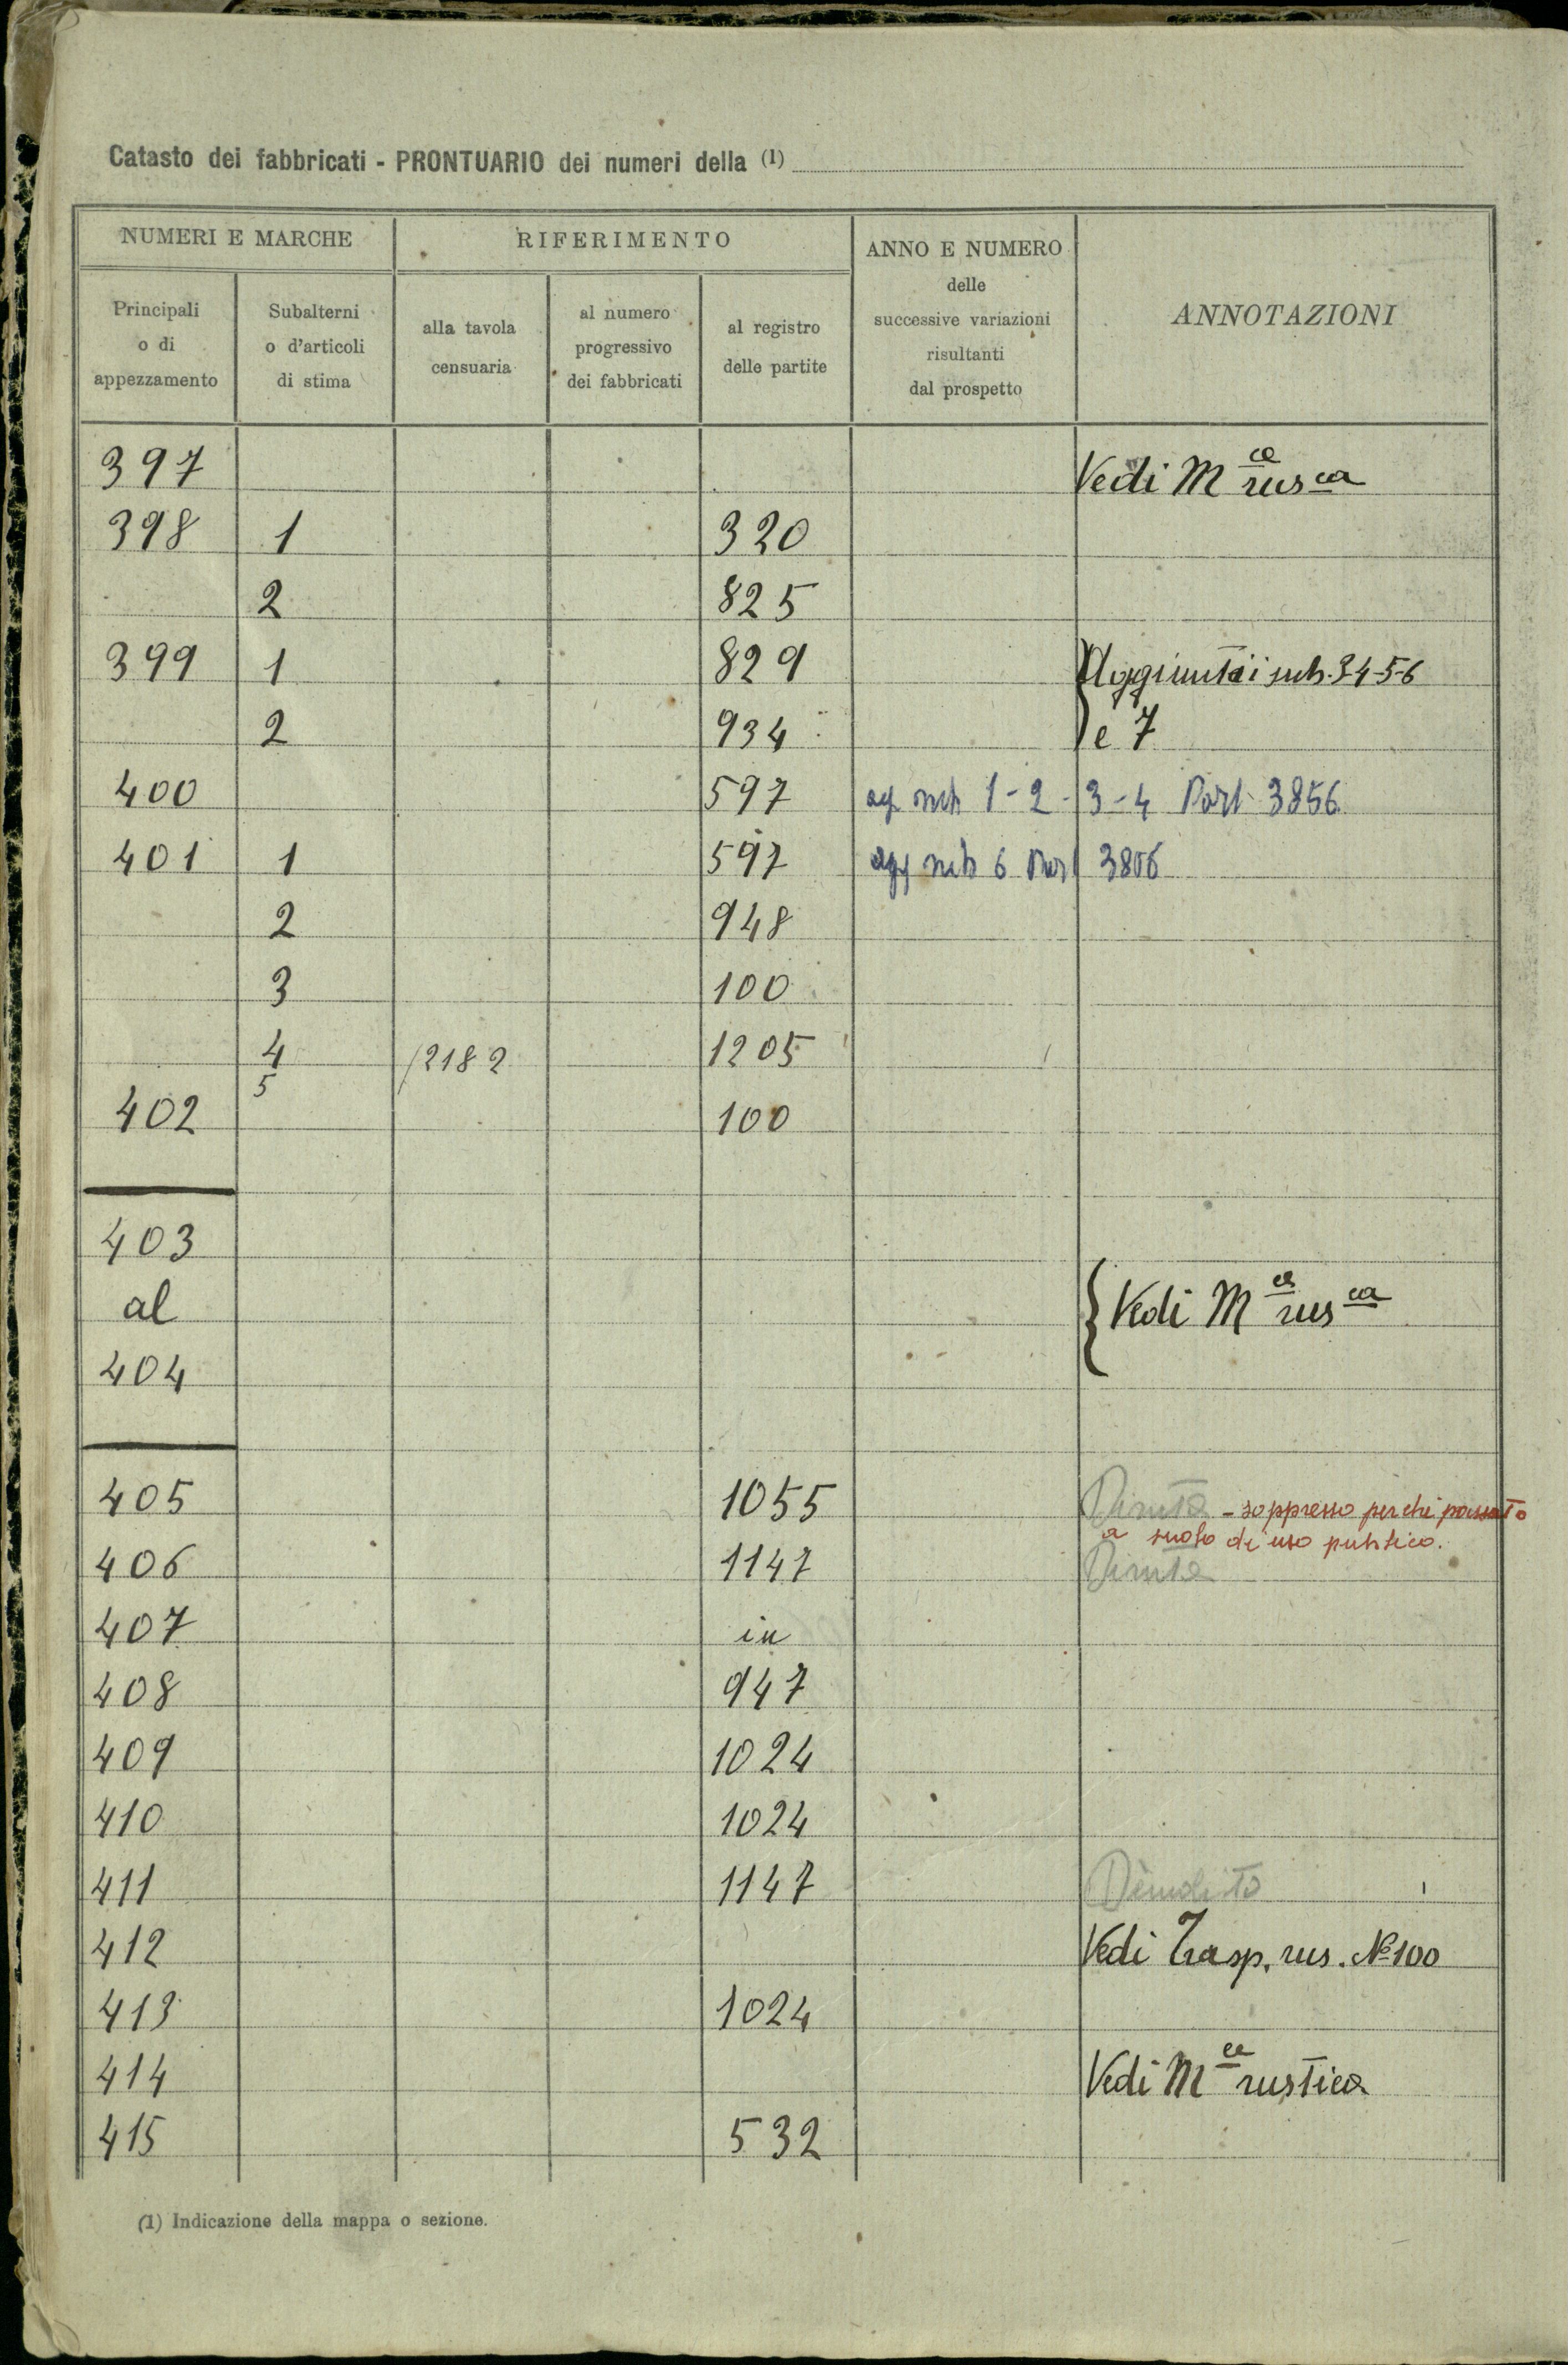 Catasto dei fabbricati - PRONTUARIO dei numeri della (1)
NUMERI E MARCHE
RIFERIMENTO
ANNO E NUMERO
delle
successive variazioni
risultanti
dal prospetto
ANNOTAZIONI
Principali
o di
appezzamento
Subalterni
o d'articoli
di stima
alla tavola
censuaria
al numero
progressivo
dei fabbricati
al registro
delle partite
397 Vedi M ca rus ca
398 1 320
2 825
399 1 829 Aggiunti i sub. 3-4-5-6
2 934 e 7
400 597 ag sub 1-2-3-4 Part 3856
401 1 597 agg sub 6 Part
2 948
3 100
4 /2182 1205
5
402 100
403
al Vedi M ca rus ca
404
405 1055 Diruta - soppresso perchè passato
a suolo di uso pubblico.
406 1147 Diruta
407 in
408 947
409 1024
410 1024
411 1147 Demolito
412 Vedi Trasp. rus. No 100
413 1024
414 Vedi M ca rustica
415 532
(1) Indicazione della mappa o sezione.